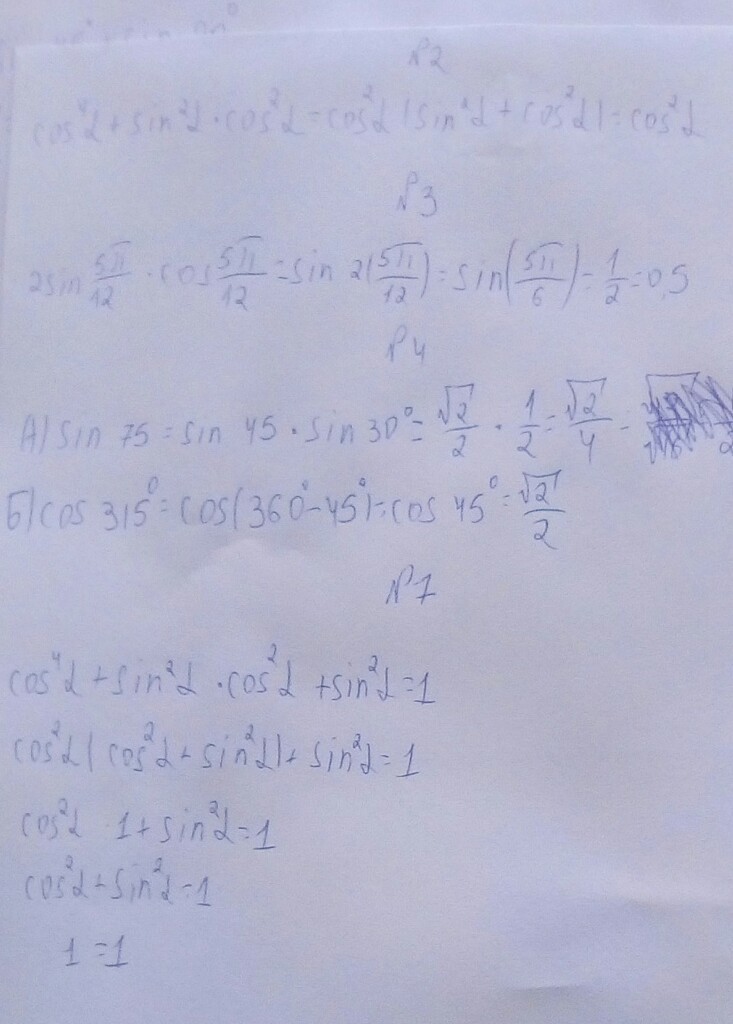 №2
cos⁴α + sin²α · cos²α = cos²α (sin²α + cos²α) = cos²α
№3
2sin 5π/12 · cos 5π/12 = sin 2(5π/12) = sin(5π/6) = 1/2 = 0,5
№4
А) sin 75 = sin 45 · sin 30° = √2/2 · 1/2 = √2/4 =
Б) cos 315° = cos(360°-45°) = cos 45° = √2/2
№7
cos⁴α + sin²α · cos²α + sin²α = 1
cos²α (cos²α + sin²α) + sin²α = 1
cos²α 1 + sin²α = 1
cos²α + sin²α = 1
1 = 1